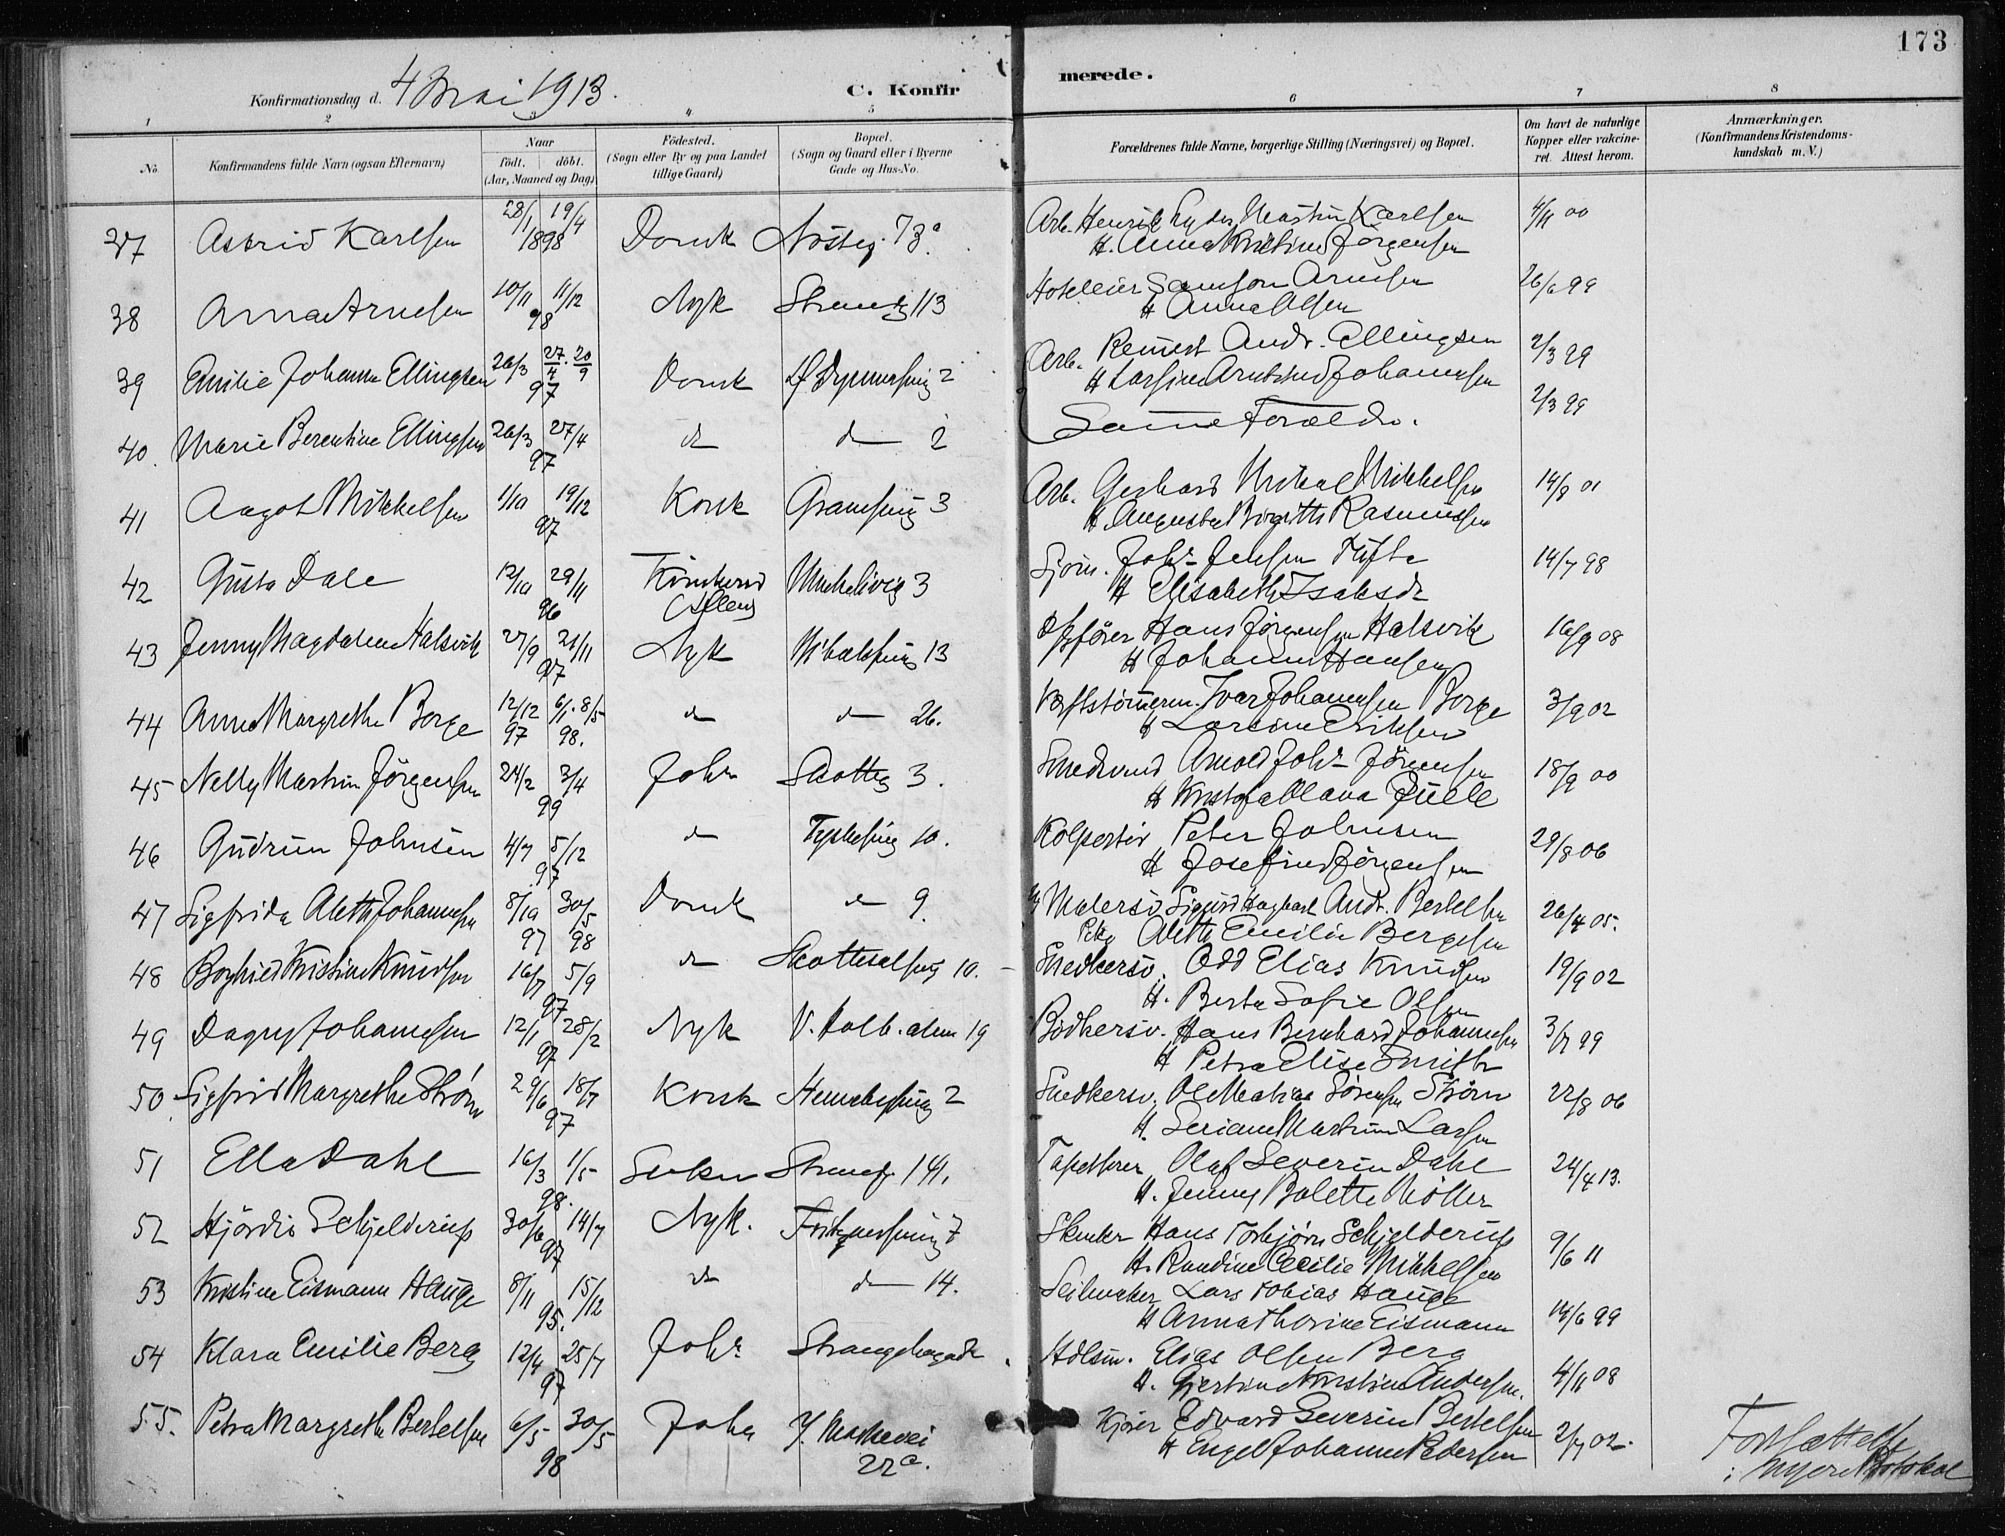 173
Konfirmationsdag d. 4 Mai 1913.
C. Konfirmerede.
1 2 3 4 5 6 7 8
No
Konfirmandens fulde Navn (ogsaa Efternavn)
Naar
födt. döbt.
(Aar, Maaned og Dag)
Födested.
(Sogn eller By og paa Landet tillige Gaard)
Bopæl.
(Sogn og Gaard eller i Byerne Gade og Hus-No.
Forældrenes fulde Navne, borgerlige Stilling (Næringsvei) og Bopæl.
Om havt de naturlige Kopper eller vakcineret. Attest herom.
Anmærkninger.
(Konfirmandens Kristendomskundskab m. V.)
37 Astrid Karlsen 28/1 19/4 1898 Domk Nøsteg. 73a Arb. Henrik Martin Karlsen 4/11 00
H. Anna Kristine Jörgensen
38 Anna Arnesen 10/11 11/12 98 Nyk Strandg 113 Hoteleier Samson Arnesen 26/6 99
H Anna Olsen
39 Emilie Johanne Ellingsen 26/3 27/4 . 20/9 97 Domk 2 Arb. Andr. Ellingsen 2/3 99
H Johannessen
40. Marie Berentine Ellingsen 26/3 27/4 97 do do 2 Samme Forældre. 2/3 99
41 Aagot Mikkelsen 1/10 19/12 97 Korsk 3 Arb. Gerhard Mikal Mikkelsen 14/8 01
H. Augusta Birgitte Rasmussen
42 Gusta Dale 12/10 29/11 96 3 Sjöm. Johs Jensen Tufte 14/7 98
H Elisabeth Isaksdr
43 Jenny Magdalene Halsvik 27/9 21/11 97 Nyk 13 Skpfører Hans Jørgensen Halsvik 16/9 08
H Johanne Hansen
44 Anna Margrethe Borge 12/12 97 6/1. 8/5 98. do do 26. Ivar Johannessen Borge 3/9 02
H Larsine Eriksen
45 Nelly Martine Jörgensen 24/2 3/4 99 Johs Skotteg 3. Smedsvend Arnold Johs Jörgensen 18/9 00
H Olava
46 Gudrun Johnsen 4/7 5/12 97 do 10. Kolportør Peter Johnsen 29/8 06
H Josefine Jörgensen
47 Sigfrida Alette Johannesen 8/10 97 30/5 98 Domk do 9. Malersv Sigurd Hagbart Andr. Bertelsen 26/4 05.
Pike Alette Emilie Bergesen
48 Borghild Kristine Knudsen 16/7 5/9 97 do 10. Snedkersv. Odd Elias Knudsen 19/9 02
H. Berta Sofie Olsen
49 Dagny Johannesen 12/1 28/2 97 Nyk V. Holb. alm 19 Bödkersv. Hans Bernhard Johannesen 3/7 99
H Petra Elise Smith
50. Sigfrid Margrethe Strøm 29/6 18/7 97 Korsk 2 Snedkersv. Ole Matias Sörensen Strøm 22/8 06
H. Seriane Martine Larsen
51 Ella Dahl 16/3 1/5 98. Strandg. 141. Tapetserer Olaf Severin Dahl 24/4 13.
H. Jenny Bolette Möller
52 Hjördis Schjelderup 30/6 14/7 97 Nyk. 7 Hans Torbjörn Schjelderup 9/6 11
H. Randine Cecilie Mikkelsen
53 Kristine Eismann Hauge 8/11 15/12 95. do do 14. Seilmaker Lars Tobias Hauge 14/6 99
H Anna Thorine Eismann
54 Klara Emilie Berg 12/4 25/7 97 Johs Strangehagade. Elias Olsen Berg 4/11 08
H. Gjertine Kristine Andersen.
55. Petra Margrethe Bertelsen 6/5 30/5 98 Johs 22a. Kjører Edvard Severin Bertelsen 2/7 02.
H Engel Johanne Pedersen
Fortsættelse
i nyere Protokol